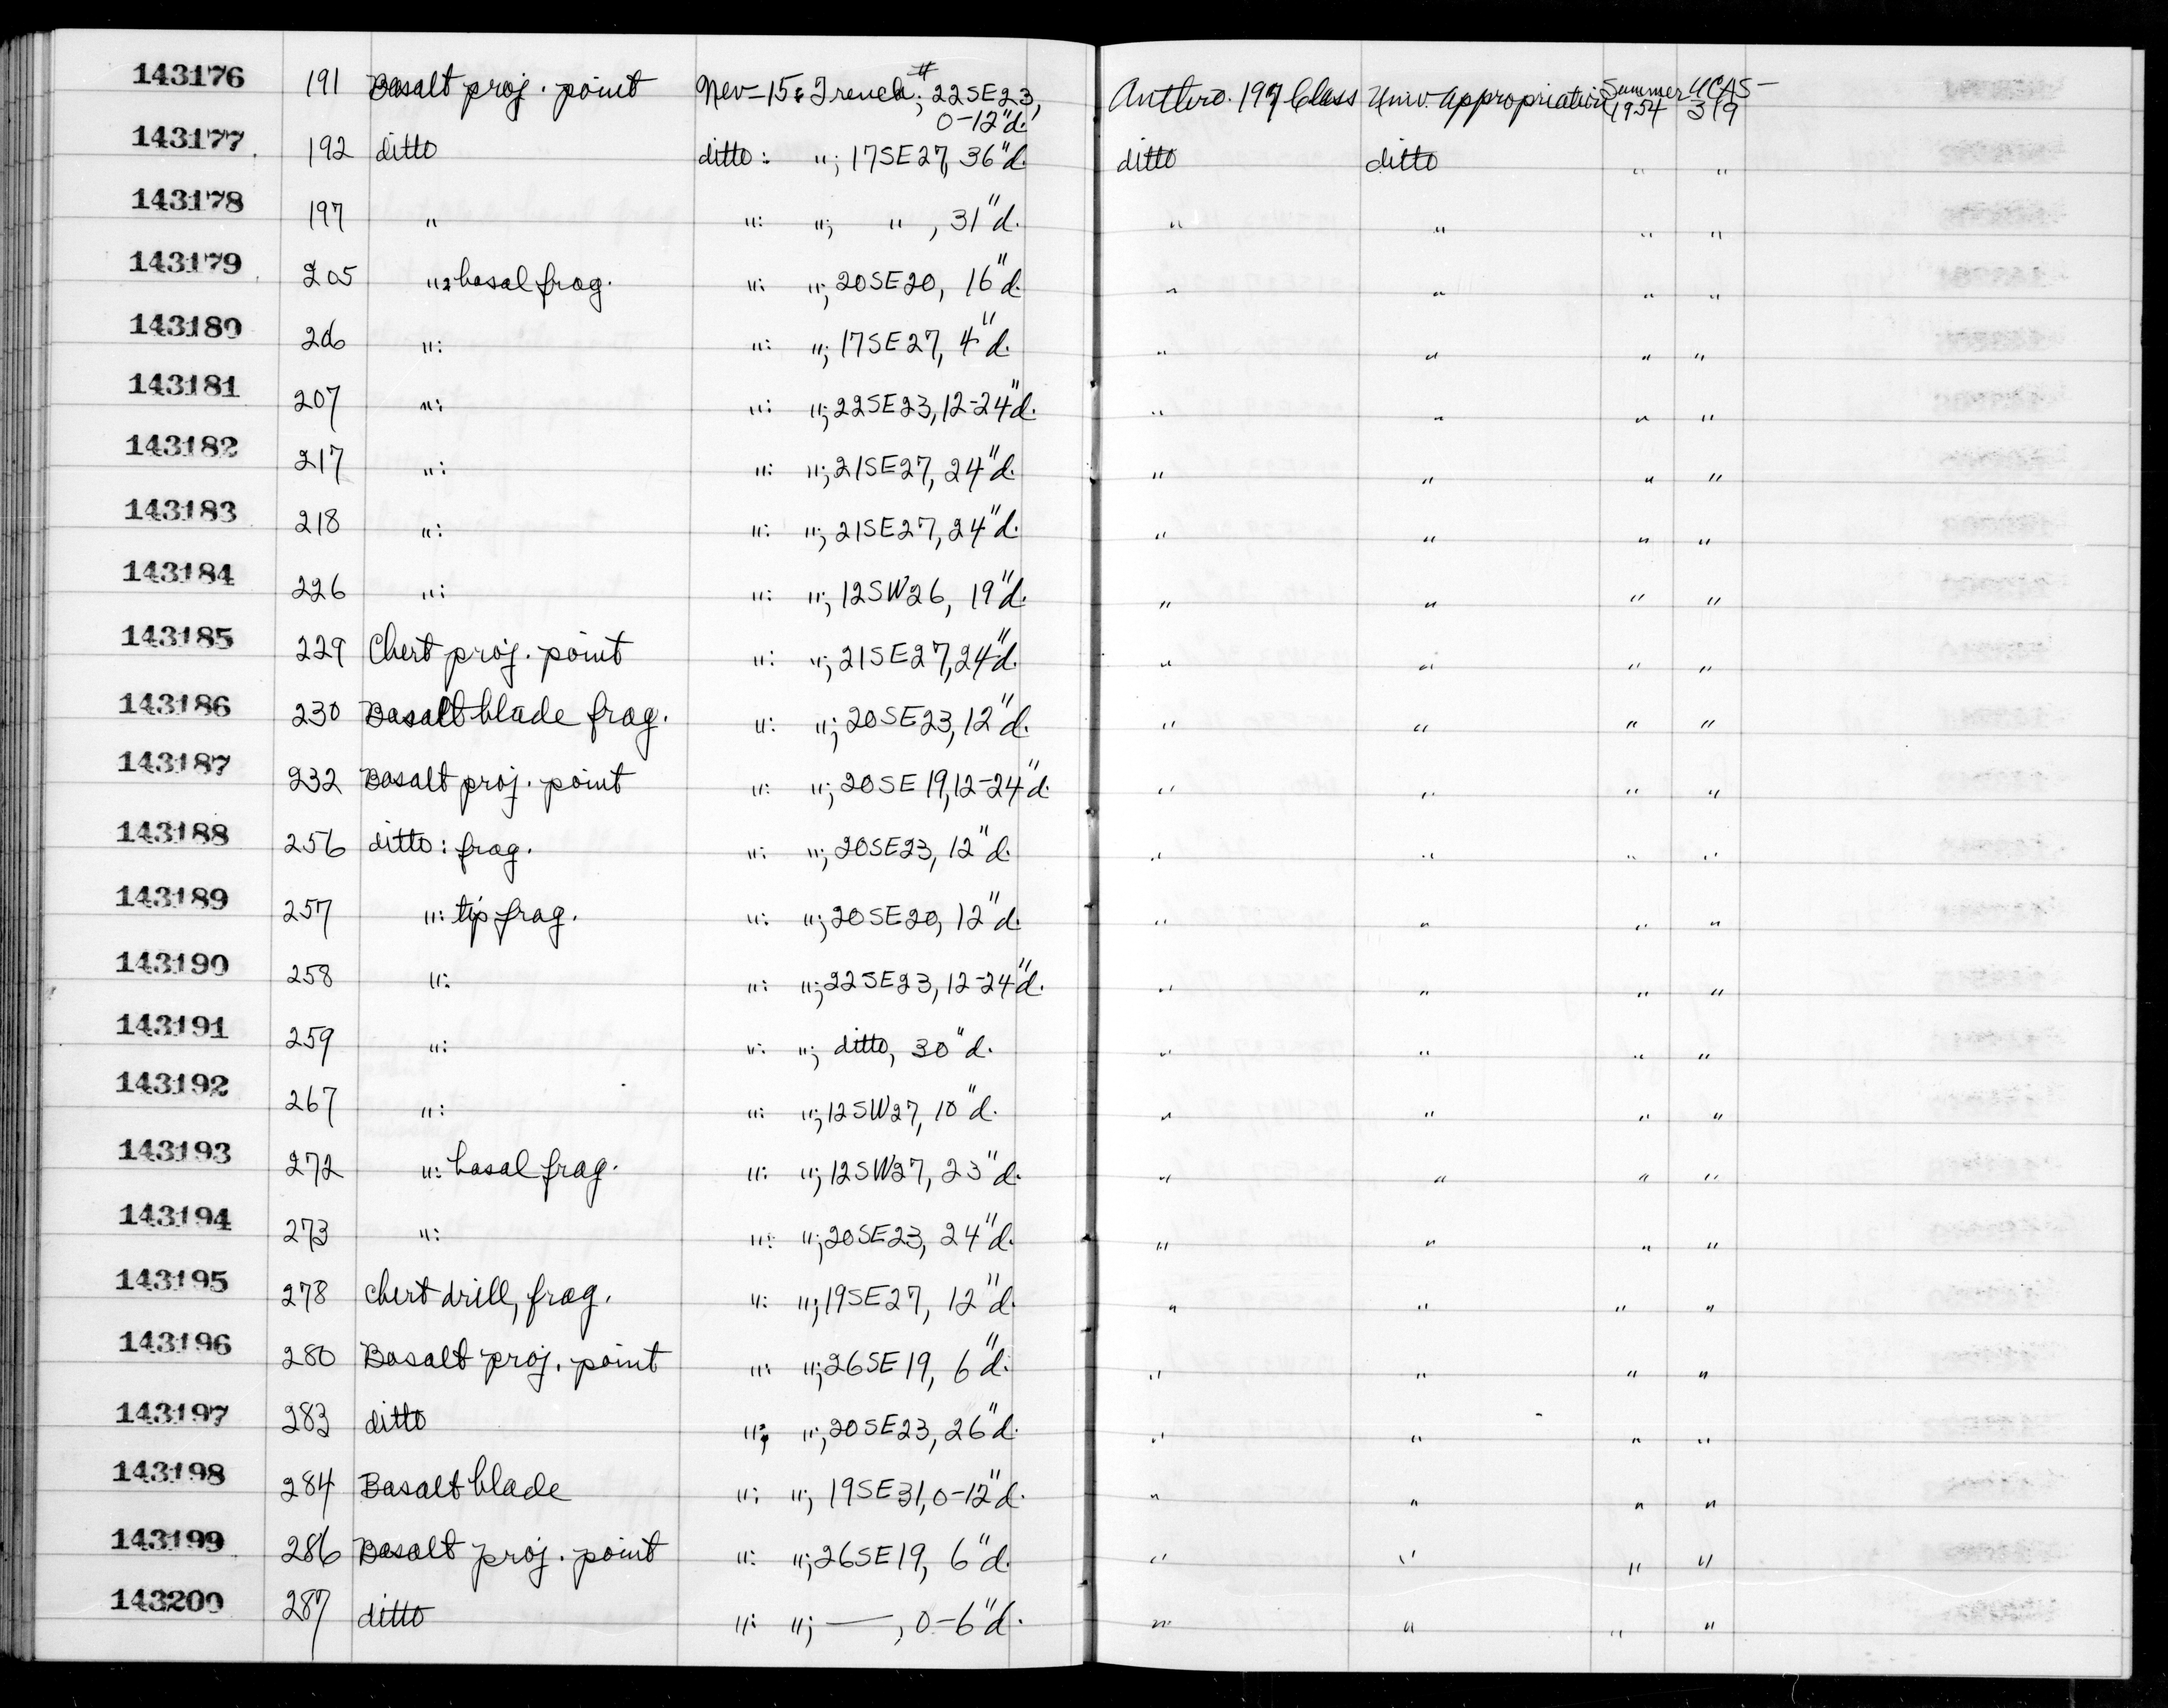 143176 191 Basalt proj. point Nev-15: Trench #; 22SE23, 0-12"d. Anthro. 197 Class Univ. appropriation Summer 1954 UCAS-319
143177 192 ditto ditto: "; 17SE27, 36"d. ditto ditto " "
143178 197 " ": "; ", 31"d. " " " "
143179 205 ": basal frag. ": "; 20SE20, 16"d. " " " "
143180 206 ": ": "; 17SE27, 4"d. " " " "
143181 207 ": ": "; 22SE23, 12-24"d. " " " "
143182 217 ": ": "; 21SE27, 24"d. " " " "
143183 218 ": ": "; 21SE27, 24"d. " " " "
143184 226 ": ": "; 12SW26, 19"d. " " " "
143185 229 Chert proj. point ": "; 21SE27, 24"d. " " " "
143186 230 Basalt blade frag. ": "; 20SE23, 12"d. " " " "
143187 232 Basalt proj. point ": "; 20SE19, 12-24"d. " " " "
143188 256 ditto: frag. ": "; 20SE23, 12"d. " " " "
143189 257 ": tip frag. ": "; 20SE20, 12"d. " " " "
143190 258 ": ": "; 22SE23, 12-24"d. " " " "
143191 259 ": ": "; ditto, 30"d. " " " "
143192 267 ": ": "; 12SW27, 10"d. " " " "
143193 272 ": basal frag. ": "; 12SW27, 23"d. " " " "
143194 273 ": ": "; 20SE23, 24"d. " " " "
143195 278 chert drill, frag. ": "; 19SE27, 12"d. " " " "
143196 280 Basalt proj. point ": "; 26SE19, 6"d. " " " "
143197 283 ditto "; "; 20SE23, 26"d. " " " "
143198 284 Basalt blade ": "; 19SE31, 0-12"d. " " " "
143199 286 Basalt proj. point ": "; 26SE19, 6"d. " " " "
143200 287 ditto ": "; —, 0-6"d. " " " "